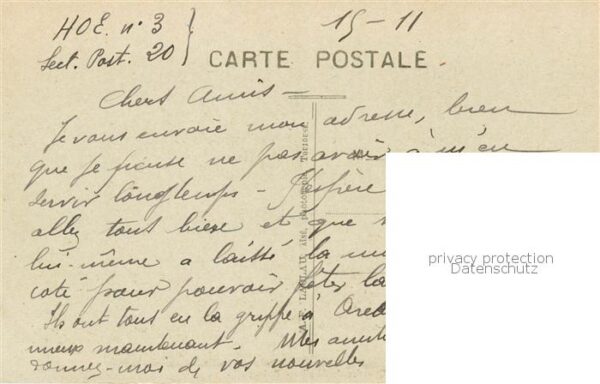 HOE. n° 3
Sect. Post. 20
15-11
CARTE POSTALE.
Chers Amis -
Je vous envoie mon adresse, bien
que je pense ne pas avoir à m'en
servir longtemps - J'espère
allez tous bien et que
lui-même a laissé la
coté pour pouvoir fêter la
Ils ont tous eu la grippe à
mieux maintenant. Mes
donnez-moi de vos nouvelles
privacy protection
Datenschutz